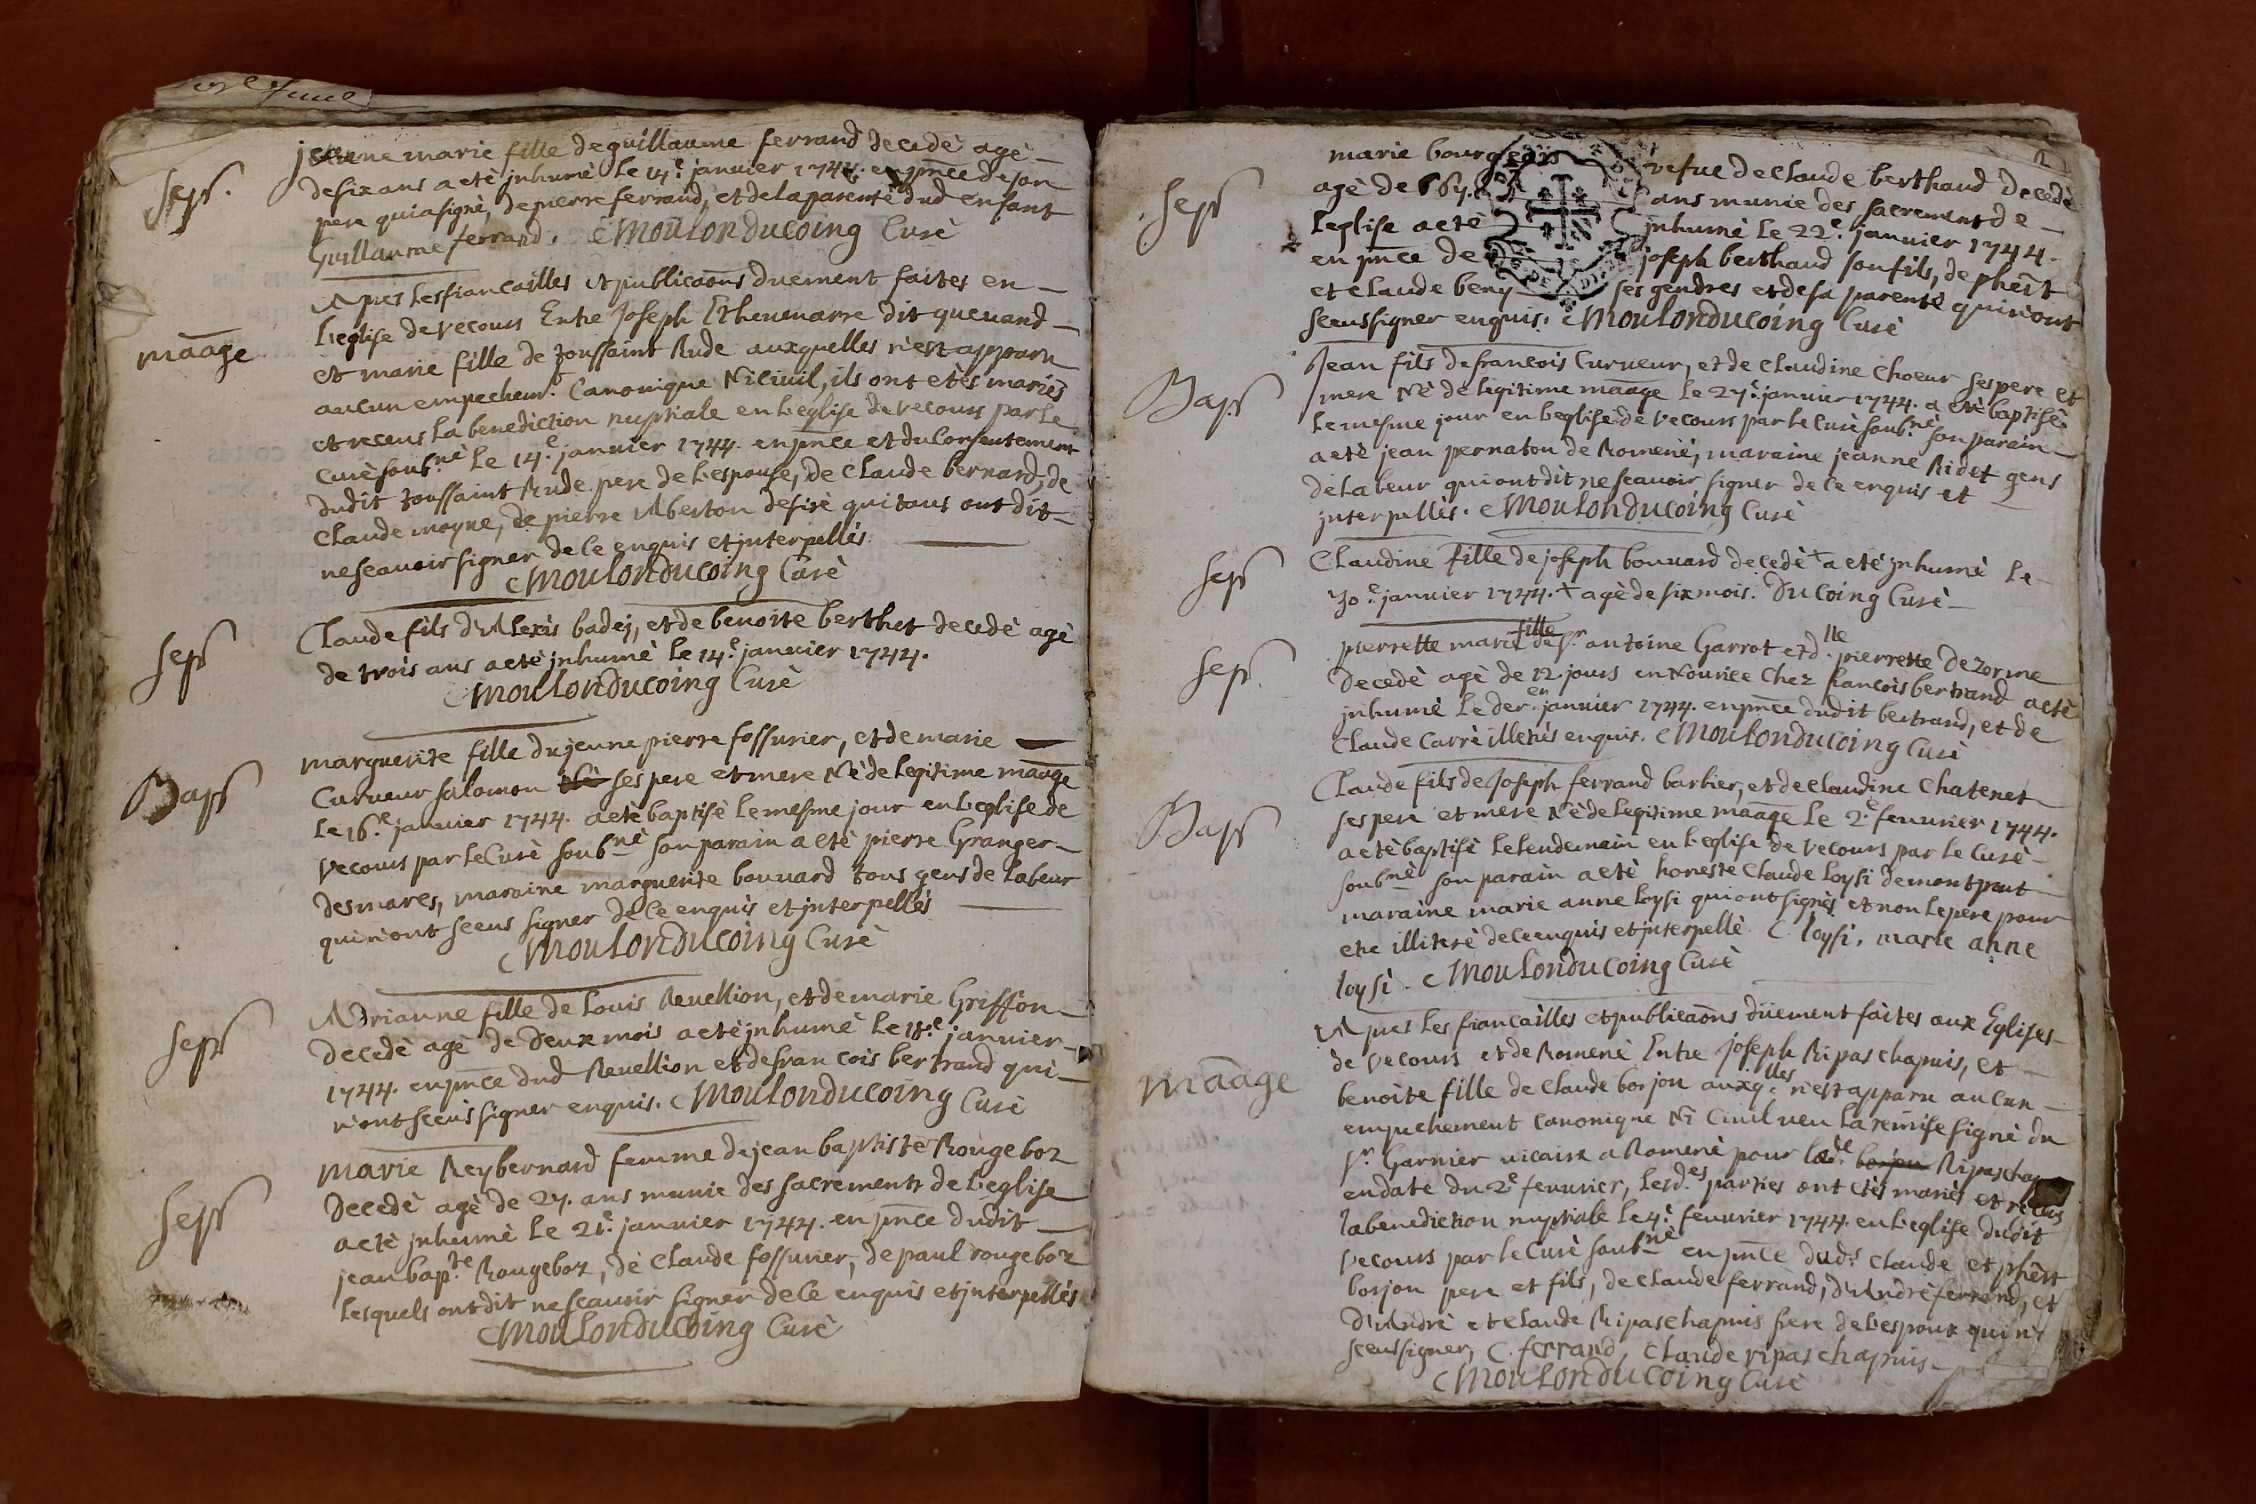 Sep.
jeanne marie fille de guillaume ferrand decedè agè
de six ans a etè jnhumè le 14e. janvier 1744. en pnce de son
pere qui a signè, de pierre ferrand, et de la parentè dud enfant
Guillaume ferrand. Moulonducoing Curè
maage
Apres les fiancailles et publicaons duement faites en
l'eglise de vecours Entre joseph Thevenarre dit quevand
et marie fille de toussaint Rude auxquelles n'est apparu
aucun empechemt. Canonique Ni Civil, ils ont etès mariès
et receus la benediction nuptiale en l'eglise de vecours par le
Curè soubnè. le 14e. janvier 1744. en pnce et du Consentement
dudit toussaint Rude pere de l'espouse, de Claude bernard, de
Claude moyne, de pierre Aberton desirè qui tous ont dit
ne scavoir signer de ce enquis et jnterpellès.
Moulonducoing Curè
Sep
Claude fils d'Alexis badej, et de benoite berthet decedè agè
de trois ans a etè jnhumè le 14e. janvier 1744.
Moulonducoing Curè
Bap
marguerite fille du jeune pierre fossurier, et de marie
Curveur salomon ses pere et mere Nè de legitime maage
le 16e. janvier 1744. a etè baptisè le mesme jour en l'eglise de
vecours par le Curè soubnè son parain a etè pierre Granger
des mares, maraine marguerite bouvard tous gens de labeur
qui n'ont sceus signer de ce enquis et jnterpellès
Moulonducoing Curè
Sep
Adrianne fille de Louis Revellion, et de marie Griffon
decedè agè de deux mois a etè jnhumè le 18e. janvier
1744. en pnce dud Revellion et de francois bertrand qui
n'ont sceus signer enquis. Moulonducoing Curè
Sep
marie Reybernard femme de jean baptiste Rougeboz
decedè agè de 27. ans munie des sacrements de l'eglise
a etè jnhumè le 21e. janvier 1744. en pnce dudit
jean bapte. Rougeboz, de Claude fossurier, de paul rougeboz
lesquels ont dit ne scavoir signer de ce enquis et jnterpellès
Moulonducoing Curè
2
Sep
marie bourgeois vefue de Claude berthaud decedè
agè de 664. ans munie des sacrement de
l'eglise a etè jnhumè le 22e. janvier 1744.
en pnce de joseph berthaud son fils, de phert
et Claude beny ses gendres et de sa parentè qui n'ont
sceus signer enquis. Moulonducoing Curè
Bap
Jean fils de francois Curveur, et de Claudine Choeur ses pere et
mere Nè de legitime maage le 27e. janvier 1744. a etè baptisè
le mesme jour en l'eglise de vecours par le Curè soubnè son parain
a etè jean pernaton de Romenè, maraine jeanne Ridet gens
de labeur qui ont dit ne scavoir signer de ce enquis et
jnterpellès. Moulonducoing Curè
Sep
Claudine fille de joseph bouvard decedè + a etè jnhumè le
30e. janvier 1744. + agè de six mois. Ducoing Curè
Sep.
pierrette marie fille de sr. antoine Garrot et dlle. pierrette dezorme
decedè agè de 12. jours en Nourice Chez francois bertrand a etè
jnhumè le deren. janvier 1744. en pnce dudit bertrand, et de
Claude Carrè illetrès enquis. Moulonducoing Curè
Bap
Claude fils de joseph ferrand barbier, et de Claudine Chatenet
ses pere et mere Nè de legitime maage le 2e. fevurier 1744.
a etè baptisè le lendemain en l'eglise de vecours par le Curè
soubnè son parain a etè honeste Claude loysi de montpont
maraine marie anne loysi qui ont signès et non le pere pour
etre illiterè de ce enquis et jnterpellè. C. loysi, marie anne
loysi. Moulonducoing Curè
maage
Apres les fiancailles et publicaons düement faites aux Eglises
de vecours et de Romenè Entre joseph Ripas chapuis, et
benoite fille de Claude borjon auxqlles. n'est apparu aucun
empechement canonique Ni Civil veu la remise signè du
sr. Garnier vicaire a Romenè pour led. borjon Ripas chap
en date du 2e fevurier, lesdes. parties ont etès mariès et receus
la benediction nuptiale le 4e. fevurier 1744. en l'eglise dudit
vecours par le Curè soubnè en pnce duds. Claude et phert
borjon pere et fils, de Claude ferrand, d'Andrè ferrand, et
d'Andrè et Claude Ripas chapuis frere de l'espoux qui n'
sceus signer, C. ferrand, Claude ripas chapuis
Moulonducoing Curè